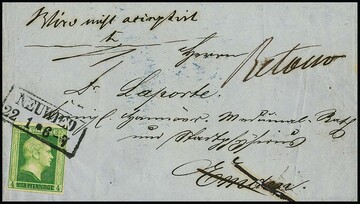 Wird nicht acceptirt
Herrn
Retour
Dr. Laporte.
Hannov. Medicinal Rath
und
Emden.
NEUWIED
22 1 * 6-7
4 4